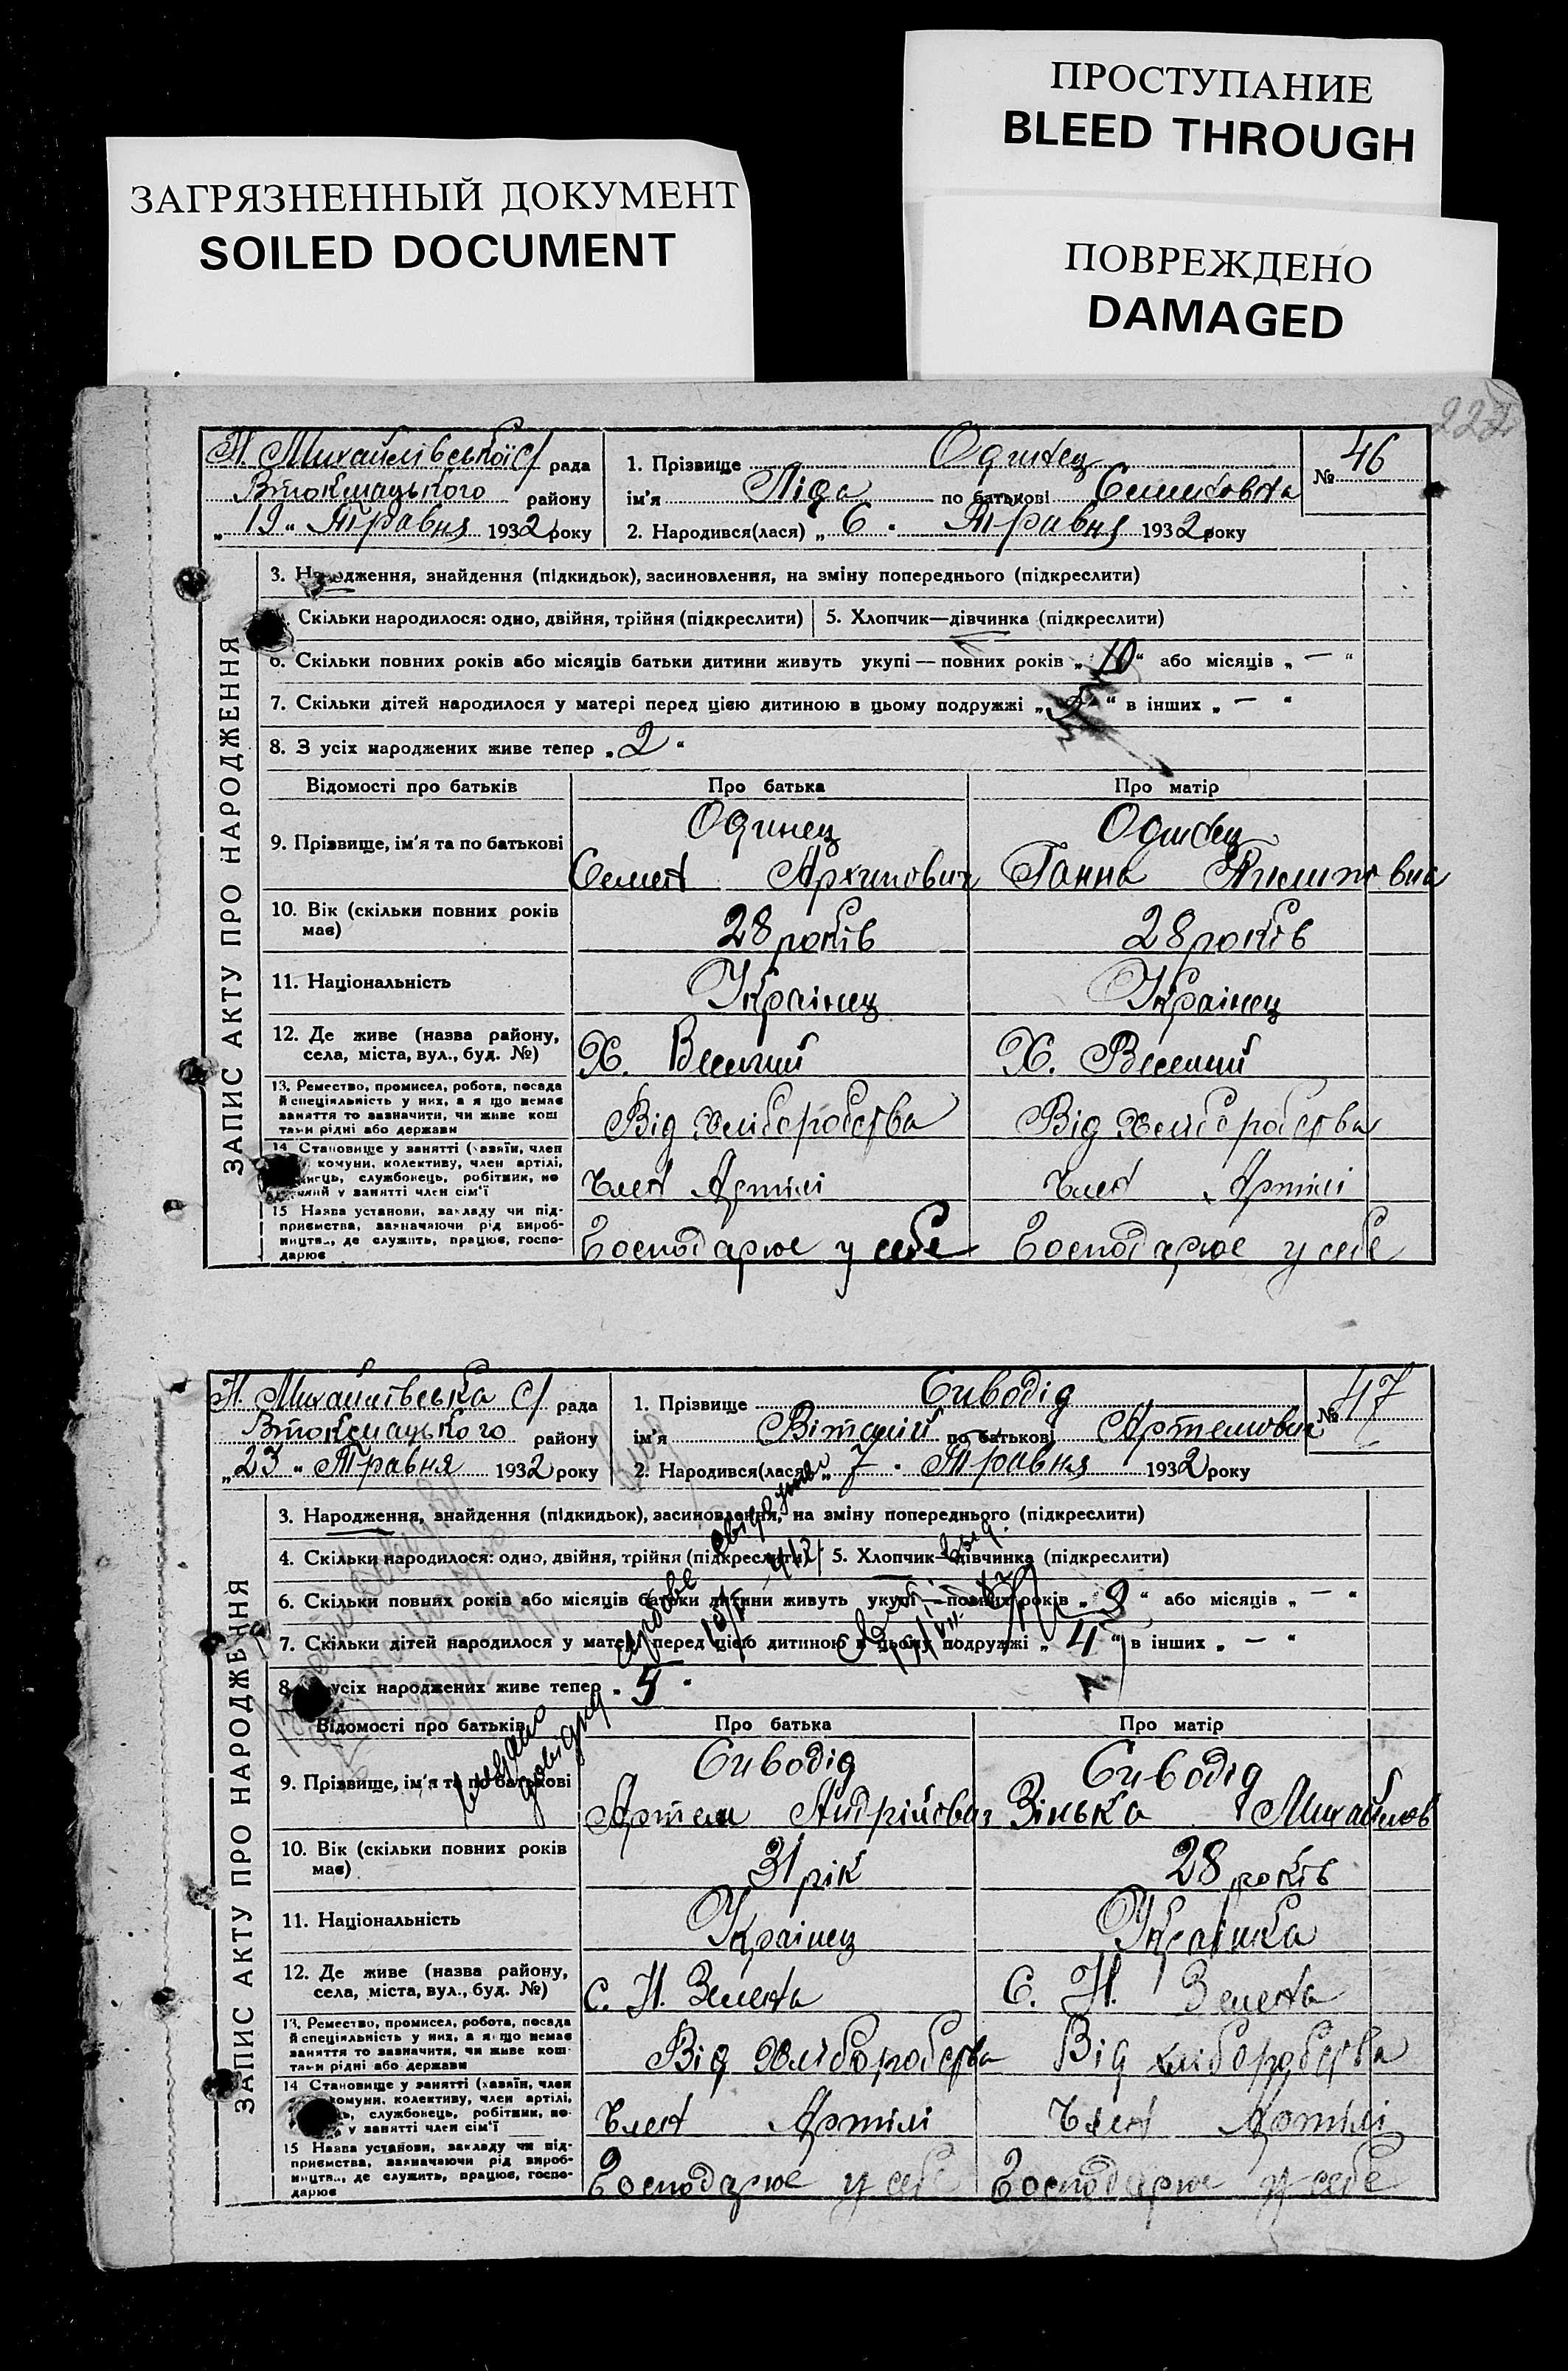 ПРОСТУПАНИЕ
BLEED THROUGH
ЗАГРЯЗНЕННЫЙ ДОКУМЕНТ
SOILED DOCUMENT
ПОВРЕЖДЕНО
DAMAGED
Н. Михайлівської с/ рада
Втокмацького району
„19“ Травня 1932 року
1. Прізвище Одинец
ім'я Ліда по батькові Семеновна
2. Народився(лася) „6“ Травня 1932 року
№ 46
ЗАПИС АКТУ ПРО НАРОДЖЕННЯ
3. Народження, знайдення (підкидьок), засиновлення, на зміну попереднього (підкреслити)
Скільки народилося: одно, двійня, трійня (підкреслити) 5. Хлопчик—дівчинка (підкреслити)
6. Скільки повних років або місяців батьки дитини живуть укупі — повних років „10“ або місяців „—“
7. Скільки дітей народилося у матері перед цією дитиною в цьому подружжі в інших „—“
8. З усіх народжених живе тепер „2“
Відомості про батьків Про батька Про матір
9. Прізвище, ім'я та по батькові Одинец Одинец
Семен Архипович Ганна
10. Вік (скільки повних років має) 28 років 28 років
11. Національність Українец Українец
12. Де живе (назва району, села, міста, вул., буд. №) Х. Веселий Х. Веселий
13. Ремество, промисел, робота, посада
й спеціяльність у них, а якщо немає
заняття то зазначити, чи живе кош
тами рідні або держави
Від хліборобства Від хліборобства
14 Становище у занятті (хазяїн, член
комуни, колективу, член артілі,
службовець, робітник, по-
у занятті член сім'ї
Член Артілі Член Артілі
15 Назва установи, закладу чи під-
приємства, зазначаючи рід вироб-
ництва, де служить, працює, госпо-
дарює
Господарює у себе Господарює у себе
Н. Михайлівська с/ рада
Втокмацького району
„23“ Травня 1932 року
1. Прізвище Сиводід
ім'я Віталій по батькові Артемович
2. Народився(лася) „7“ Травня 1932 року
№ 47
ЗАПИС АКТУ ПРО НАРОДЖЕННЯ
3. Народження, знайдення (підкидьок), засиновлення, на зміну попереднього (підкреслити)
4. Скільки народилося: одно, двійня, трійня (підкреслити) 5. Хлопчик—дівчинка (підкреслити)
6. Скільки повних років або місяців батьки дитини живуть укупі — повних років „9“ або місяців „—“
7. Скільки дітей народилося у матері перед цією дитиною в цьому подружжі „4“ в інших „—“
8. усіх народжених живе тепер „5“
Відомості про батьків Про батька Про матір
9. Прізвище, ім'я та по батькові Сиводід Сиводід
Артем Андрійович Зінька Михайлов
10. Вік (скільки повних років має) 31 рік 28 років
11. Національність Українец Українка
12. Де живе (назва району, села, міста, вул., буд. №) с. Н. Зелена С. Н. Зелена
13. Ремество, промисел, робота, посада
й спеціяльність у них, а якщо немає
заняття то зазначити, чи живе кош-
тами рідні або держави
Від хліборобства Від хліборобства
14 Становище у занятті (хазяїн, член
комуни, колективу, член артілі,
службовець, робітник, по-
у занятті член сім'ї
Член Артілі Член Артілі
15 Назва установи, закладу чи під-
приємства, зазначаючи рід вироб-
ництва, де служить, працює, госпо-
дарює
Господарює у себе Господарює у себе